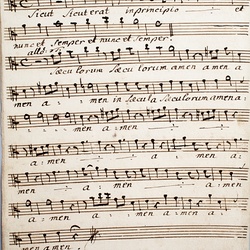 Sicut Sicut erat in principio et
nunc et semper et nunc et semper.
allo
Sæculorum Sæculorum amen amen a
men a men in sæcula sæculorum amen a
men a men
a men a men a
men a men
a men amen a
men amen.